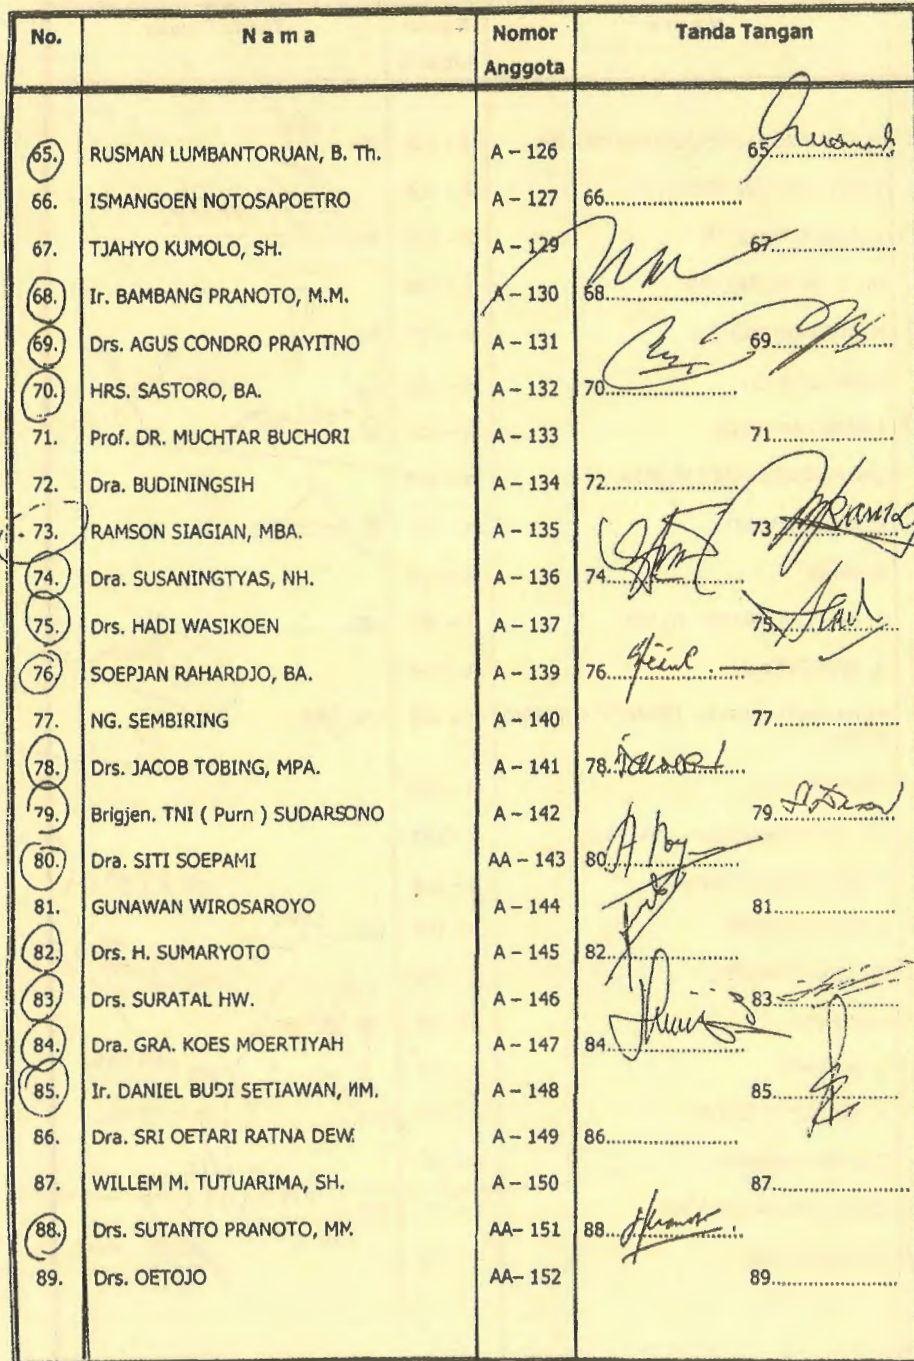 No. N a m a Nomor Anggota Tanda Tangan
65. RUSMAN LUMBANTORUAN, B. Th. A – 126 65
66. ISMANGOEN NOTOSAPOETRO A – 127 66
67. TJAHYO KUMOLO, SH. A – 129 67
68. Ir. BAMBANG PRANOTO, M.M. A – 130 68
69. Drs. AGUS CONDRO PRAYITNO A – 131 69
70. HRS. SASTORO, BA. A – 132 70
71. Prof. DR. MUCHTAR BUCHORI A – 133 71
72. Dra. BUDININGSIH A – 134 72
73. RAMSON SIAGIAN, MBA. A – 135 73
74. Dra. SUSANINGTYAS, NH. A – 136 74
75. Drs. HADI WASIKOEN A – 137 75
76. SOEPJAN RAHARDJO, BA. A – 139 76
77. NG. SEMBIRING A – 140 77
78. Drs. JACOB TOBING, MPA. A – 141 78
79. Brigjen. TNI ( Purn ) SUDARSONO A – 142 79
80. Dra. SITI SOEPAMI AA – 143 80
81. GUNAWAN WIROSAROYO A – 144 81
82. Drs. H. SUMARYOTO A – 145 82
83. Drs. SURATAL HW. A – 146 83
84. Dra. GRA. KOES MOERTIYAH A – 147 84
85. Ir. DANIEL BUDI SETIAWAN, MM. A – 148 85
86. Dra. SRI OETARI RATNA DEW. A – 149 86
87. WILLEM M. TUTUARIMA, SH. A – 150 87
88. Drs. SUTANTO PRANOTO, MM. AA– 151 88
89. Drs. OETOJO AA– 152 89